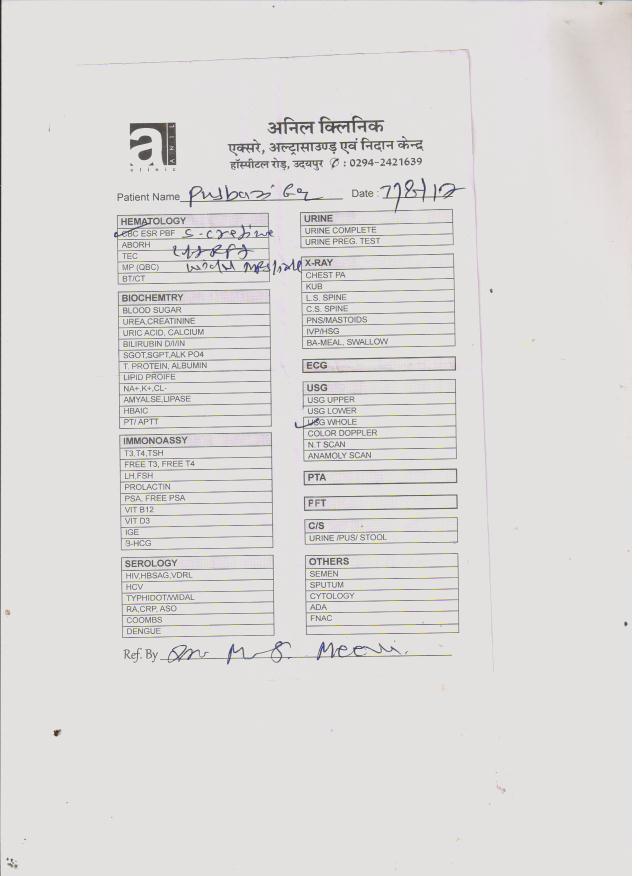 ANIL
a
clinic
अनिल क्लिनिक
एक्सरे, अल्ट्रासाउण्ड एवं निदान केन्द्र
हॉस्पीटल रोड़, उदयपुर ✆ : 0294-2421639
Patient Name Date : 7/8/12
HEMATOLOGY
CBC ESR PBF
ABORH
TEC
MP (QBC)
BT/CT
BIOCHEMTRY
BLOOD SUGAR
UREA,CREATININE
URIC ACID, CALCIUM
BILIRUBIN D/I/IN
SGOT,SGPT,ALK PO4
T. PROTEIN, ALBUMIN
LIPID PROIFE
NA+,K+,CL-
AMYALSE,LIPASE
HBAIC
PT/ APTT
IMMONOASSY
T3,T4,TSH
FREE T3, FREE T4
LH,FSH
PROLACTIN
PSA, FREE PSA
VIT B12
VIT D3
IGE
B-HCG
SEROLOGY
HIV,HBSAG,VDRL
HCV
TYPHIDOT/WIDAL
RA,CRP, ASO
COOMBS
DENGUE
URINE
URINE COMPLETE
URINE PREG. TEST
X-RAY
CHEST PA
KUB
L.S. SPINE
C.S. SPINE
PNS/MASTOIDS
IVP/HSG
BA-MEAL, SWALLOW
ECG
USG
USG UPPER
USG LOWER
USG WHOLE
COLOR DOPPLER
N.T SCAN
ANAMOLY SCAN
PTA
PFT
C/S
URINE /PUS/ STOOL
OTHERS
SEMEN
SPUTUM
CYTOLOGY
ADA
FNAC
Ref. By M. S.